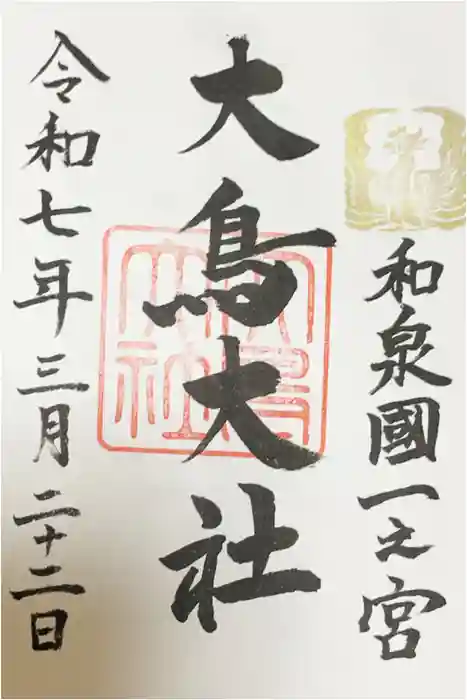 和泉國一之宮
大鳥大社
令和七年三月二十二日
大鳥大社